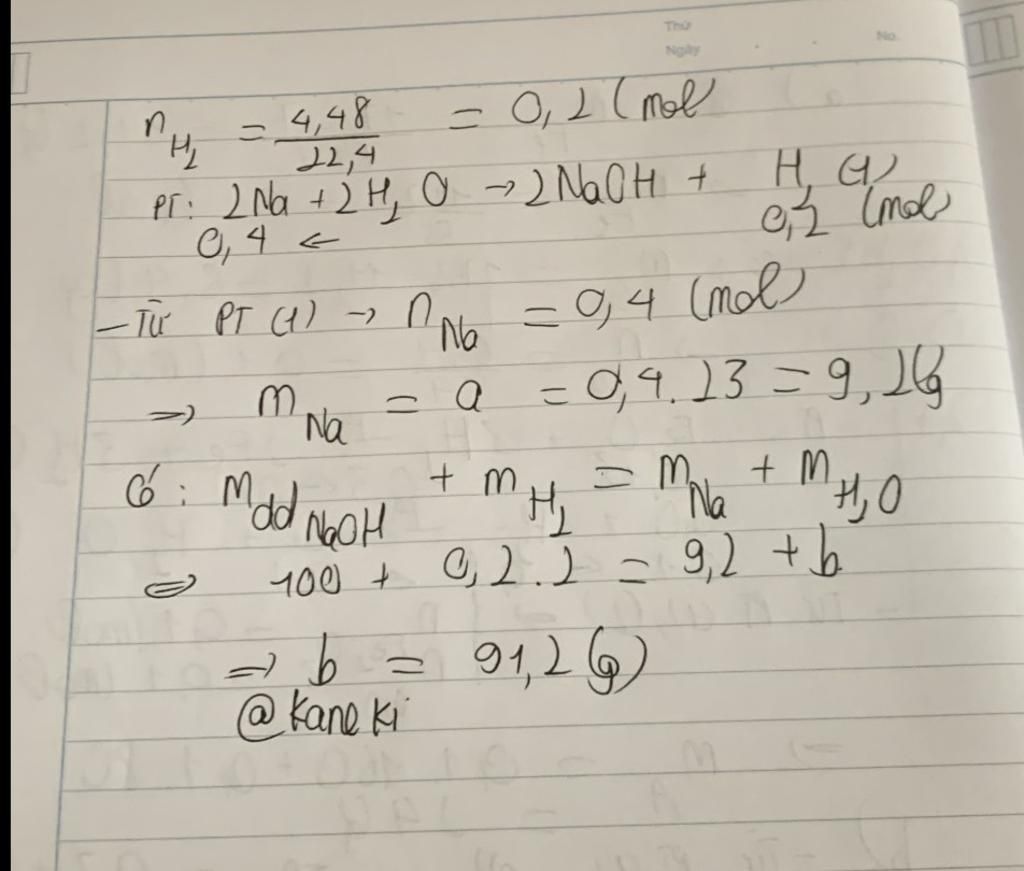 Thứ
Ngày . . No.
n_H₂ = 4,48/22,4 = 0,2 (mol)
PT: 2Na + 2H₂O → 2NaOH + H₂ (1)
0,4 ← 0,2 (mol)
- Từ PT (1) → n_Na = 0,4 (mol)
⇒ m_Na = a = 0,4.23 = 9,2(g
Có: m_dd NaOH + m_H₂ = m_Na + m_H₂O
⇔ 100 + 0,2.2 = 9,2 + b
⇒ b = 91,2 (g)
@kaneki